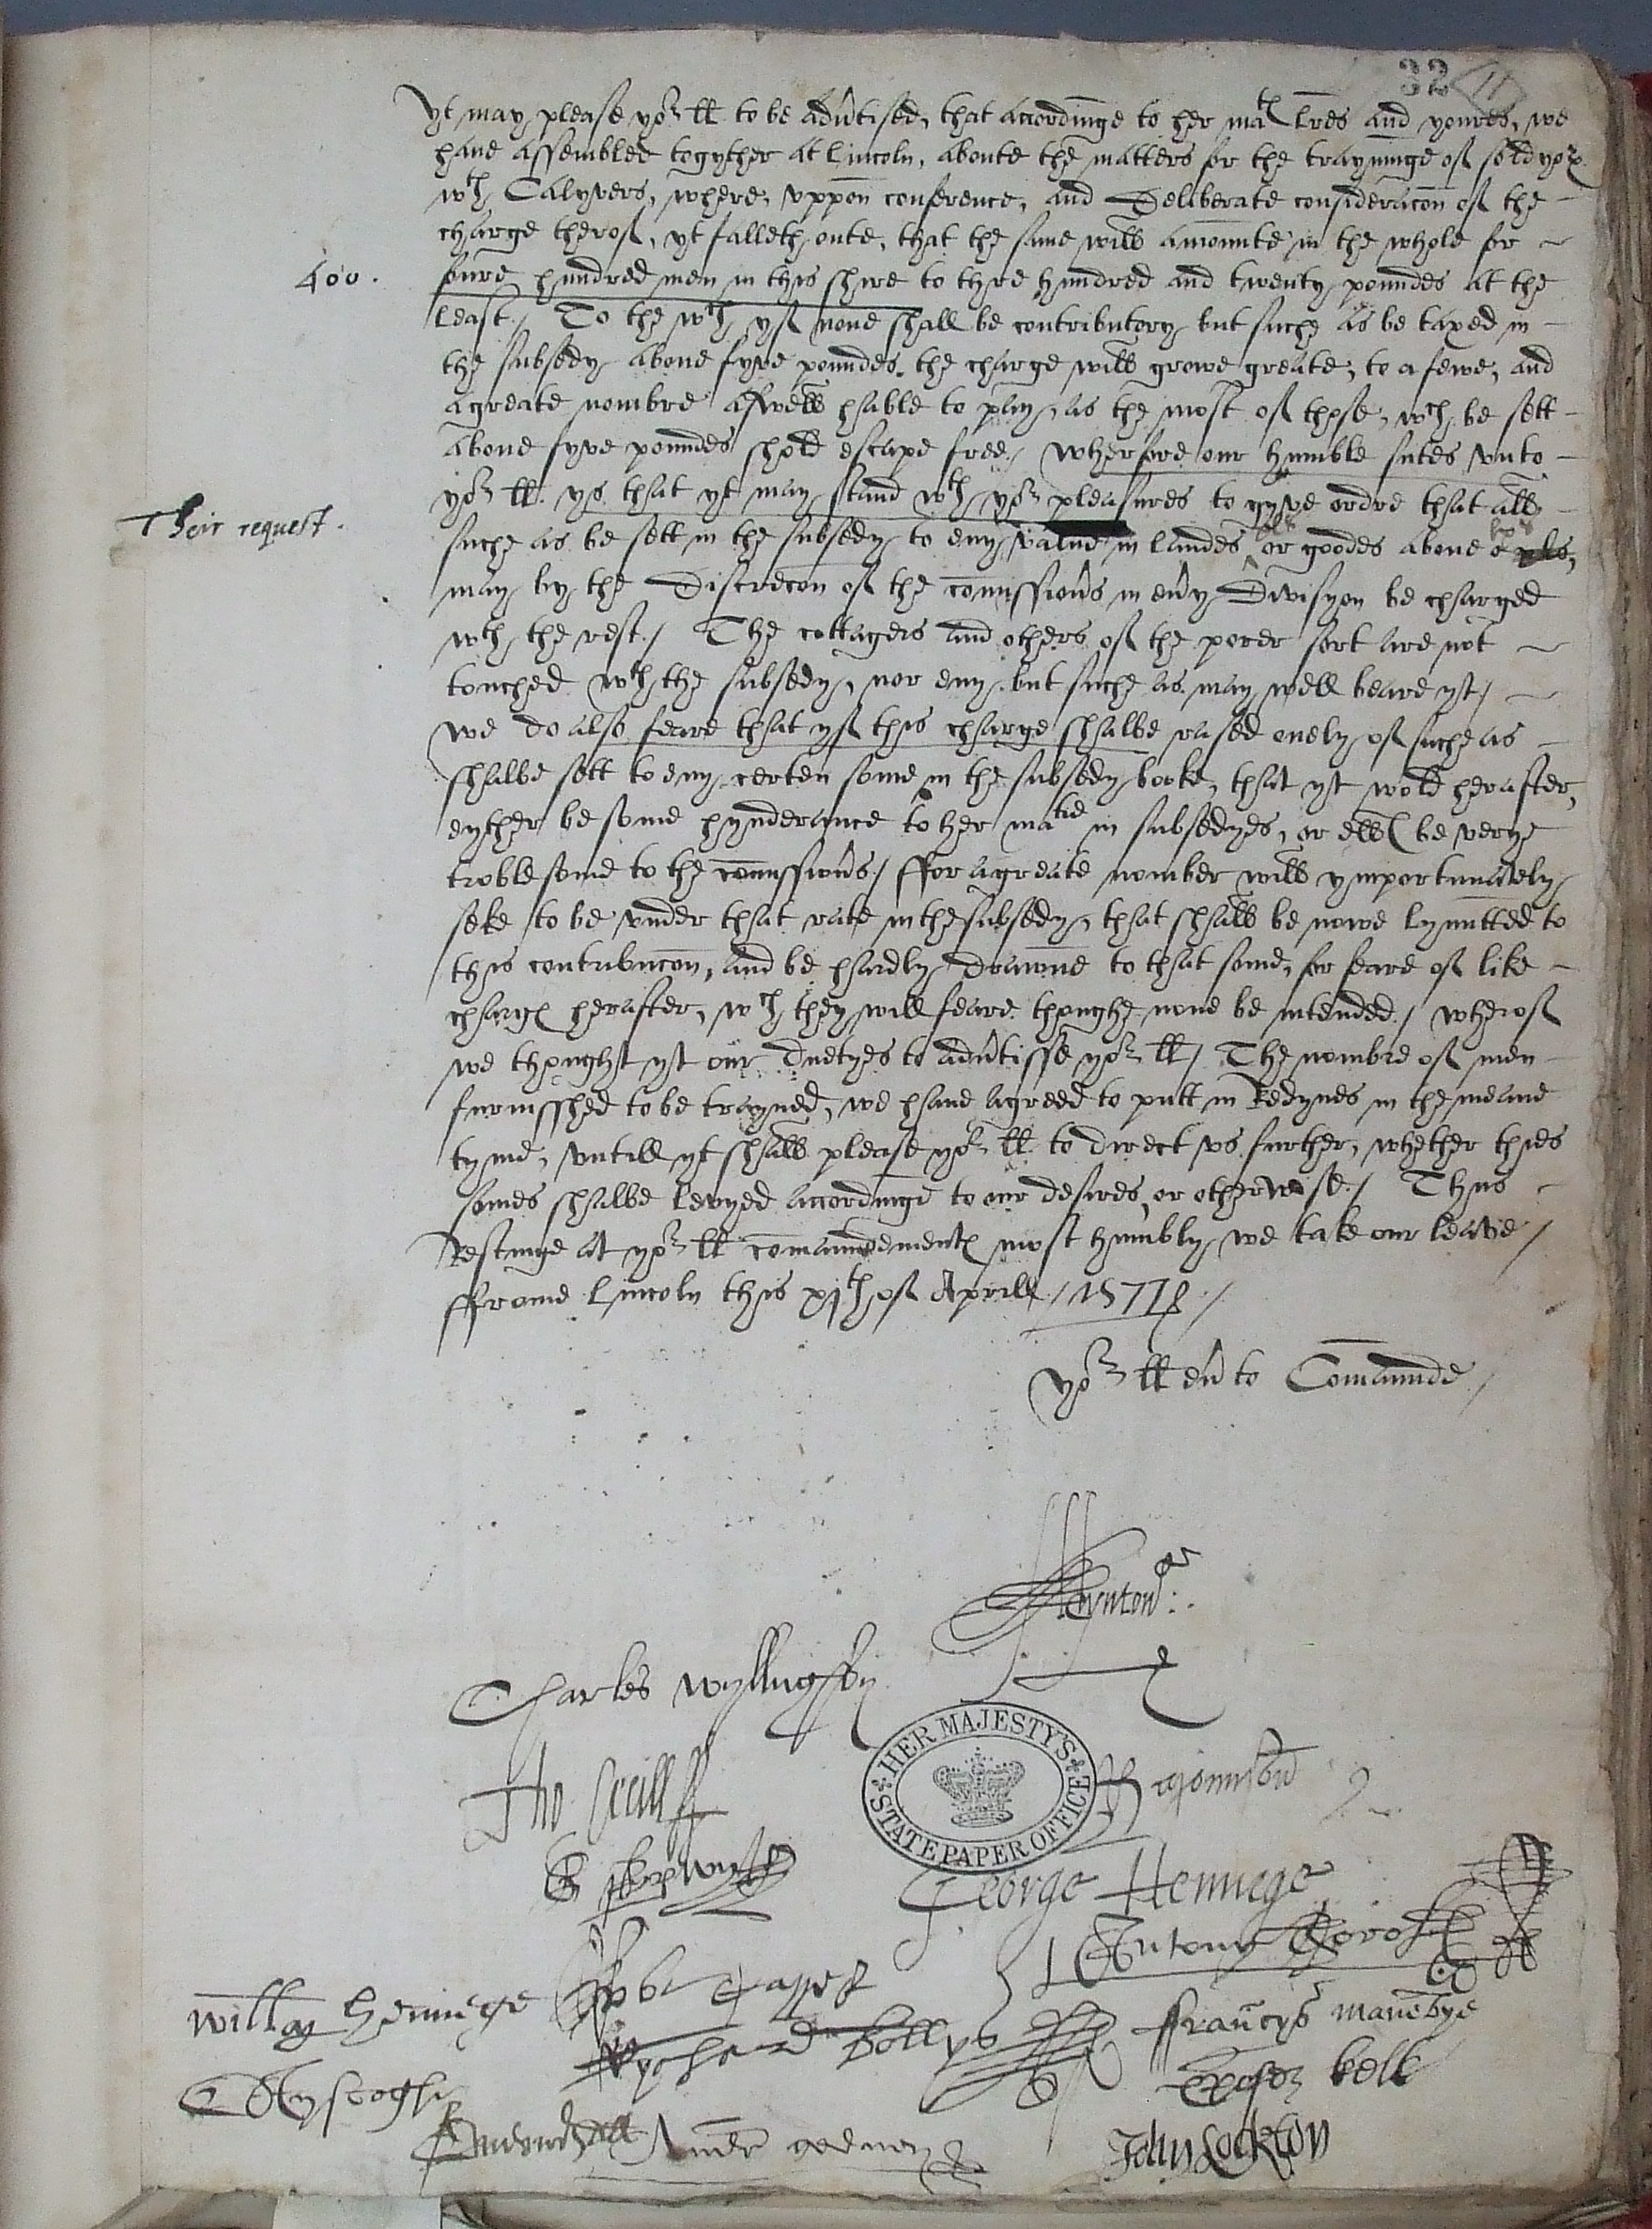 32 11
yt may please yor ll to be adv'tised, that accordinge to her mats l'res and youres, we
have assembled togyther at Lincoln, aboute the matters for the traynynge of soldyors
wth Calyvers, where, vppon conference, and Deliberate consideracon of the
charge therof, yt falleth oute, that the same will amounte in the whole for
400.
foure hundred men in this shire to thre hundred and twenty poundes at the
least./ To the wch yf none shall be contributory but suche as be taxed in
the subsedy above fyve poundes. the charge will growe greate, to a fewe, and
a greate nombre aswell hable to pay, as the most of those, wch be sett
above fyve poundes shold escape free./ Wherfore our humble sutes vnto
yor ll. ys that yt may stand wth yor pleasures to gyve ordre that all
Their request.
suche as be sett in the subsedy to eny value in landes or goodes above
may by the Discrecon of the comissioners in ev'y Divisyon be charged
wth the rest./ The cottagers and others of the porer sort are not
touched wth the subsedy, nor eny but suche as may well beare yt/
We do also feare that yf this charge shalbe rased onely of suche as
shalbe sett to eny certen some in the subsedy booke, that yt wold herafter,
eyther be some hynderance to her matie in subsedyes, or ells be verye
troblesome to the comissioners/ ffor a greate nomber will ymportunately
seke to be vnder that rate in the subsedy, that shall be nowe lymitted to
this contribucon, and be hardly drawne to that some, for feare of like
charges herafter, wch they will feare thoughe none be intended./ Wherof
we thought yt our duetyes to adv'tisse yor ll/ The nombre of men
furnisshed to be trayned, we have agreed to putt in Redynes in the meane
tyme, vntill yt shall please yor ll. to direct vs further, whether thies
somes shalbe levyed accordinge to our desires, or otherwise./ Thus
Restinge at yor ll comaundements most humbly we take our leave/
ffrome Lincoln this xjth of Aprill / 1577 /
Yor ll ev' to Comaunde /
Charles Wyllughby
HER MAJESTY'S STATE PAPER OFFICE
George Hennege
Antony Thorold
Rychard Bollys
ffrauncys manebye
John Lockton